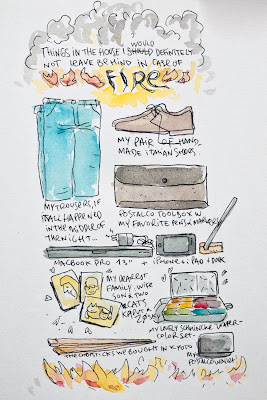 WOULD
THINGS IN THE HOUSE I SHOULD DEFINITELY
NOT LEAVE BEHIND IN CASE OF
FIRE
MY PAIR OF HAND
MADE ITALIAN SHOES.
MY TROUSERS, IF
IT ALL HAPPENED
IN THE MIDDLE OF
THE NIGHT...
POSTALCO TOOLBOX W
MY FAVORITE PENS & MARKERS
MACBOOK PRO 13" + iPHONE + iPAD +
MY DEAREST
FAMILY: WIFE
SON & TWO
CATS
MY LOVELY SCHMINCKE WATER-
COLOR SET-
THE CHOPSTICKS WE BOUGHT IN KYOTO
MY
POSTALCO